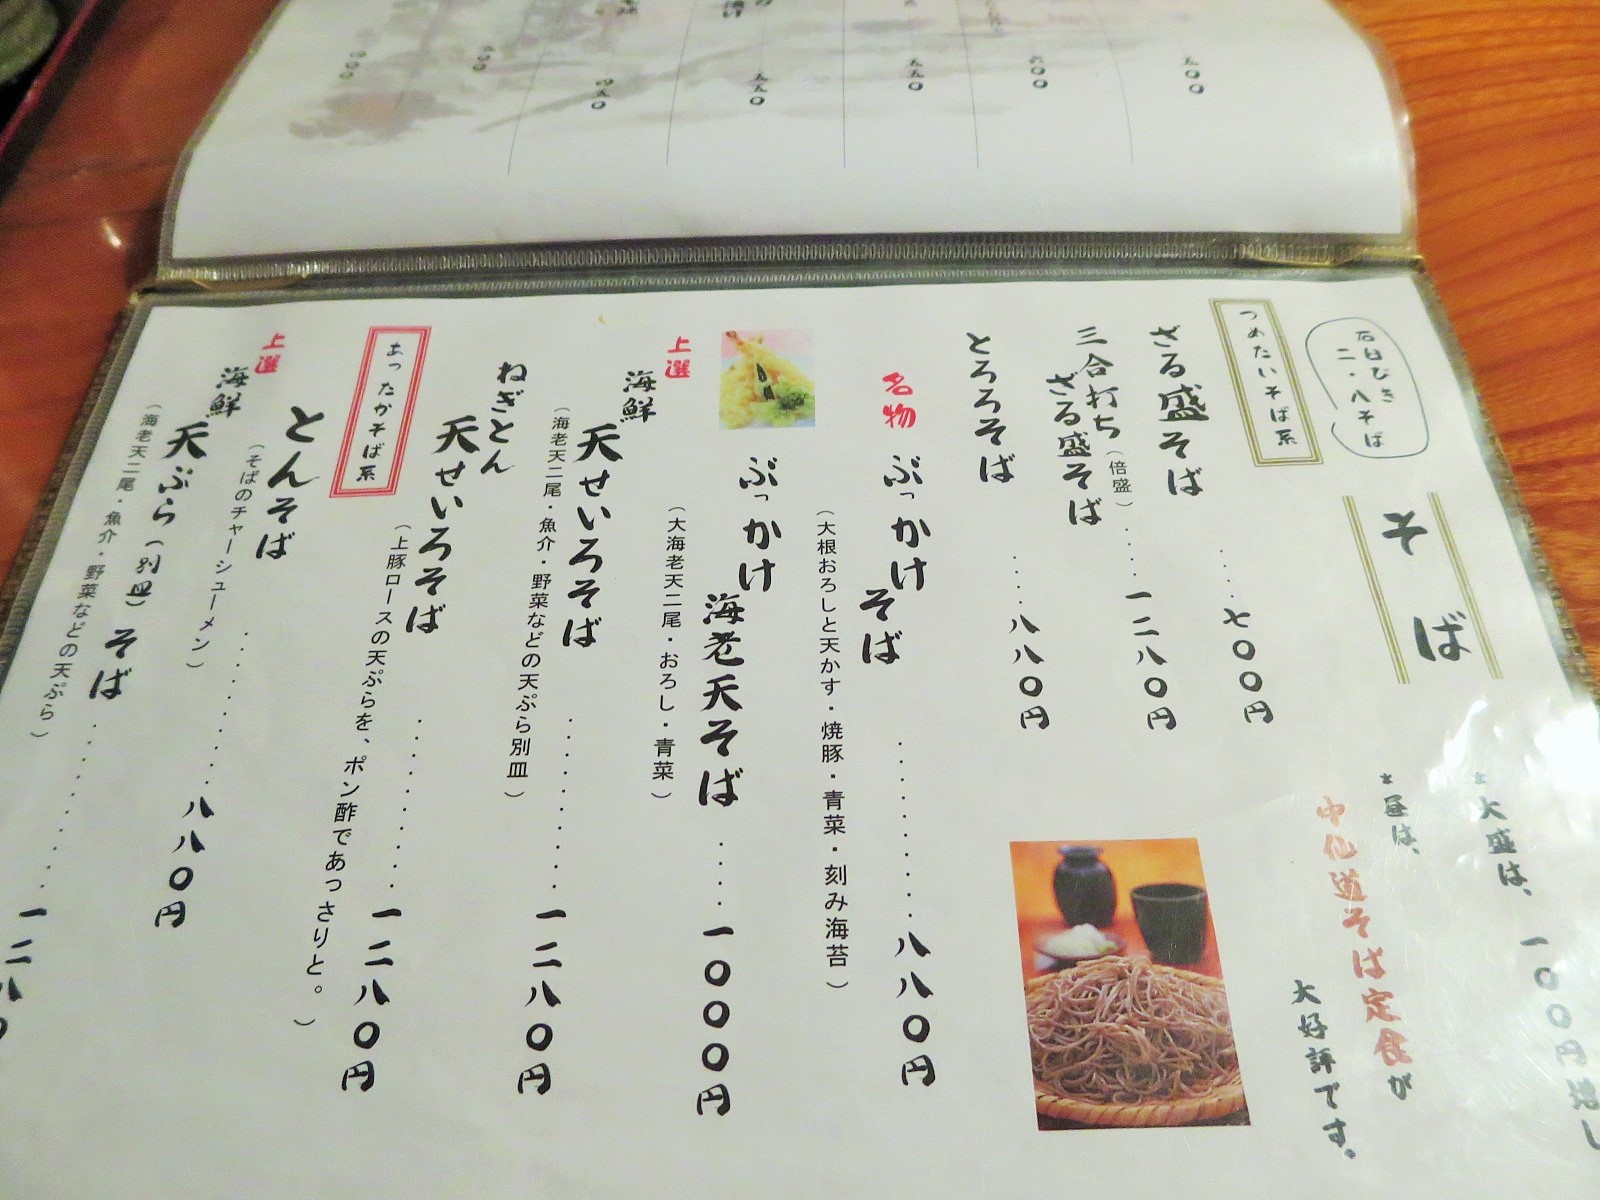 石臼びき
二・八そば
そば
*大盛は、一〇〇円増し
*昼は、
中仙道そば定食が
大好評です。
つめたいそば系
ざる盛そば ‥‥七〇〇円
三合打ち
ざる盛そば
(倍盛)‥‥一二八〇円
とろろそば ‥‥八八〇円
名物
ぶっかけ
そば ‥‥‥‥‥‥八八〇円
(大根おろしと天かす・焼豚・青菜・刻み海苔)
ぶっかけ
海老天そば ‥‥一〇〇〇円
(大海老天二尾・おろし・青菜)
上選
海鮮
天せいろそば ‥‥‥‥‥‥一二八〇円
(海老天二尾・魚介・野菜などの天ぷら別皿)
ねぎとん
天せいろそば ‥‥‥‥‥‥一二八〇円
(上豚ロースの天ぷらを、ポン酢であっさりと。)
あったかそば系
とんそば ‥‥‥‥‥‥八八〇円
(そばのチャーシューメン)
上選
海鮮
天ぷら(別皿)そば ‥‥‥‥‥‥一二八〇
(海老天二尾・魚介・野菜などの天ぷら)
五〇〇
六〇〇
五五〇
五五〇
四五〇